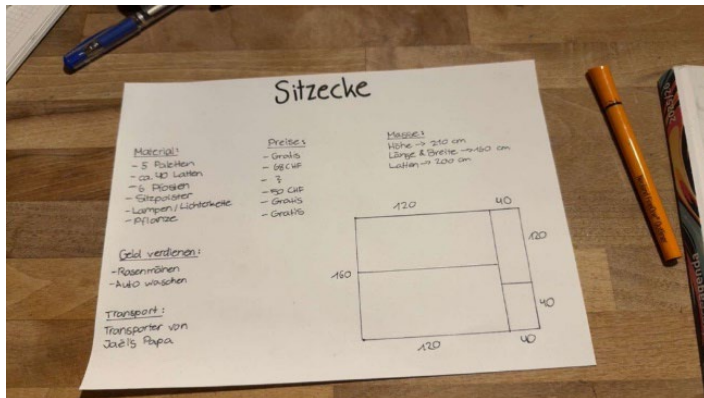 Sitzecke
Material:
- 5 Paletten
- ca 40 Latten
- 6 Pfosten
- Sitzpolster
- Lampen / Lichterkette
- Pflanze
Preise:
- Gratis
- 68 CHF
- ?
- 50 CHF
- Gratis
- Gratis
Masse:
Höhe -> 210 cm
Länge & Breite -> 160 cm
Latten -> 200 cm
Geld verdienen:
- Rasenmähen
- Auto waschen
Transport:
Transporter von
Jaël's Papa
120
40
120
160
40
120
40